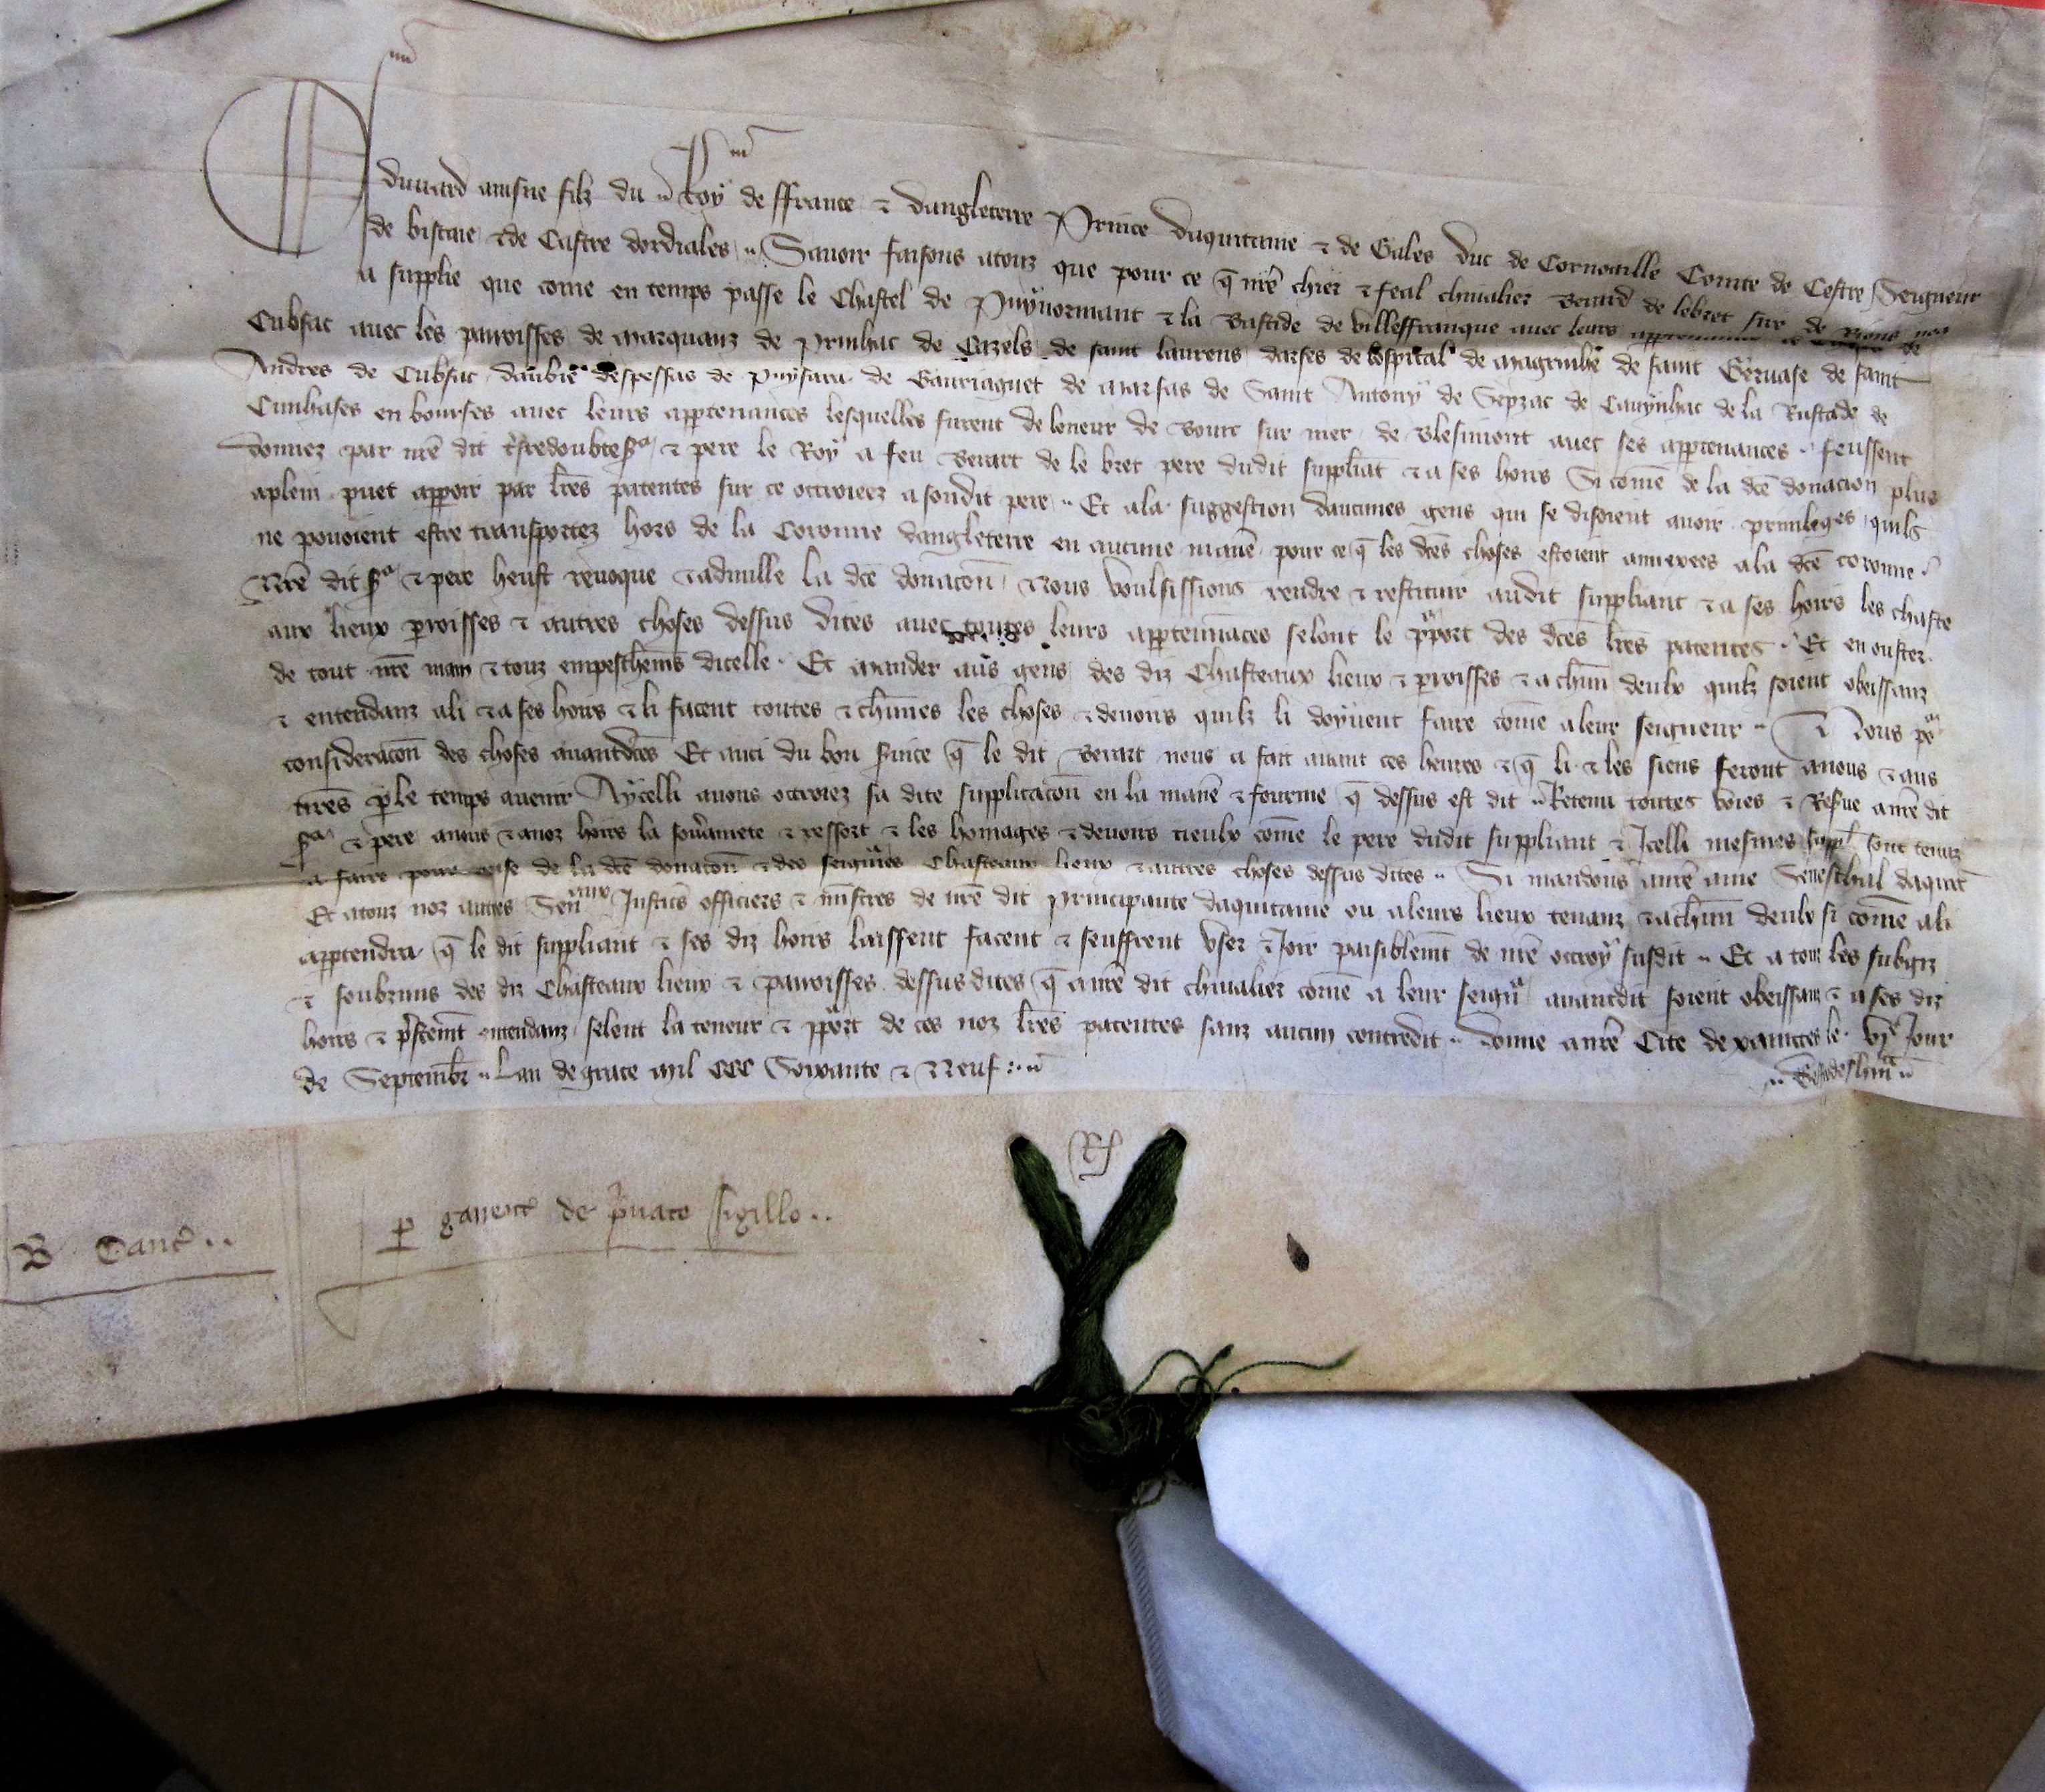 Eduuard aînsne filz du Roy de ffrance & dangleterre Prince daquitaine & de Gales Duc de Cornoaille Comte de Cestre Seigneur
de biscaie & de Castre dordiales Sauoir faisons atouz que pour ce q̃ nr̃e chier & feal chiualier Berard de lebret sire de Rions nos
a supplie que come en temps passe le Chastel de Puynormant & la Bastide de villeffranque auec leurs appertenances de
Cubsac auec les parroisses de Marquanz de Prinhac de Cazels de saint laurens darses de lospital de Magrinhe de saint Geruase de saint
Andres de Cubsac daubie despessas de Puysara de Gauriaguet de Marsas de Saint Antony de Seyzac de Cauynhac de la Rustade de
Cunhases en bourses auec leurs app̃tenances lesquelles furent de loneur de Bourc sur mer de Blesimont auec ses app̃tenances feussent
donnez par nr̃e dit tr̃sredoubte sr̃ & pere le Roy a feu Berart de le bret pere dudit suppliãt & a ses hoirs Si come de la dc̃e donacion plus
aplein puet apparoir par lr̃es patentes sur ce ottroiees asondit pere Et ala suggestion daucunes gens qui se disoient auoir priuileges quils
ne pouoient estre transportez hors de la Coronne dangleterre en aucune manẽ pour ce q̃ les dc̃es choses estoient annexees ala dc̃e coronne
Nr̃e dit sr̃ & pere heust reuoque & adnulle la dc̃e donacoñ Nous voulsissions rendre & restituir audit suppliant & a ses hoirs les chaste
aux lieux p̃roisses & autres choses dessus dites auec toutes leurs app̃tenñaces selont le p̃port des dc̃es lr̃es patentes Et en ouster
de tout nr̃e main & touz empeschem̃s dicelle Et mander aus gens des diz Chasteaux lieux & p̃roisses & a chũn deulx quilz soient obeissanz
& entendanz ali & a ses hoirs & li facent toutes & chũnes les choses & deuoirs quilz li doyuent faire come a leur seigneur & Nous pr̃
consideracoñ des choses auantdc̃es Et auci du bon s̃uice q̃ le dit Berart nous a fait auant ces heures & q̃ li & les siens feront anous & aus
nr̃es p̃ le temps auenir Aycelli auons ottroiez sa dite supplicacoñ en la manẽ & fourme q̃ dessus est dit Retenu toutes voies & Res̃ue anr̃e dit
sr̃ & pere anous & anoz hoirs la souũainete & ressort & les homages & deuoirs tieulx come le pere dudit suppliant & Icelli mesmes suppl̃ sont tenuz
a faire pour cause de la dc̃e donacoñ & des seigñies Chasteaux lieux & autres choses dessus dites Si mandons anr̃e ame Seneschal daquit̃
Et atouz noz autres Señaux Justic̃s officiers & m̃istres de nr̃e dit principaute daquitaine ou aleurs lieux tenanz & achũn deulx si come ali
app̃tendra q̃ le dit suppliant & ses diz hoirs laissent facent & seuffrent vser & Joir paisiblem̃t de nr̃e ottroy susdit Et a touz les subgiz
& soubzmis des diz Chasteaux lieux & parroisses dessusdites q̃ a nr̃e dit chiualier come a leur seigñ auantdit soient obeissanz & a ses diz
hoirs & p̃stem̃t entendanz selont la teneur & p̃port de ces noz lr̃es patentes sanz aucun contredit Donne a nr̃e Cite de xainctes le vje Jour
de Septembr̃ Lan de grace Mil CCC Soixante & Neuf
Rx
B Canc̃
p̃ garent̃ de p̃uato sigillo